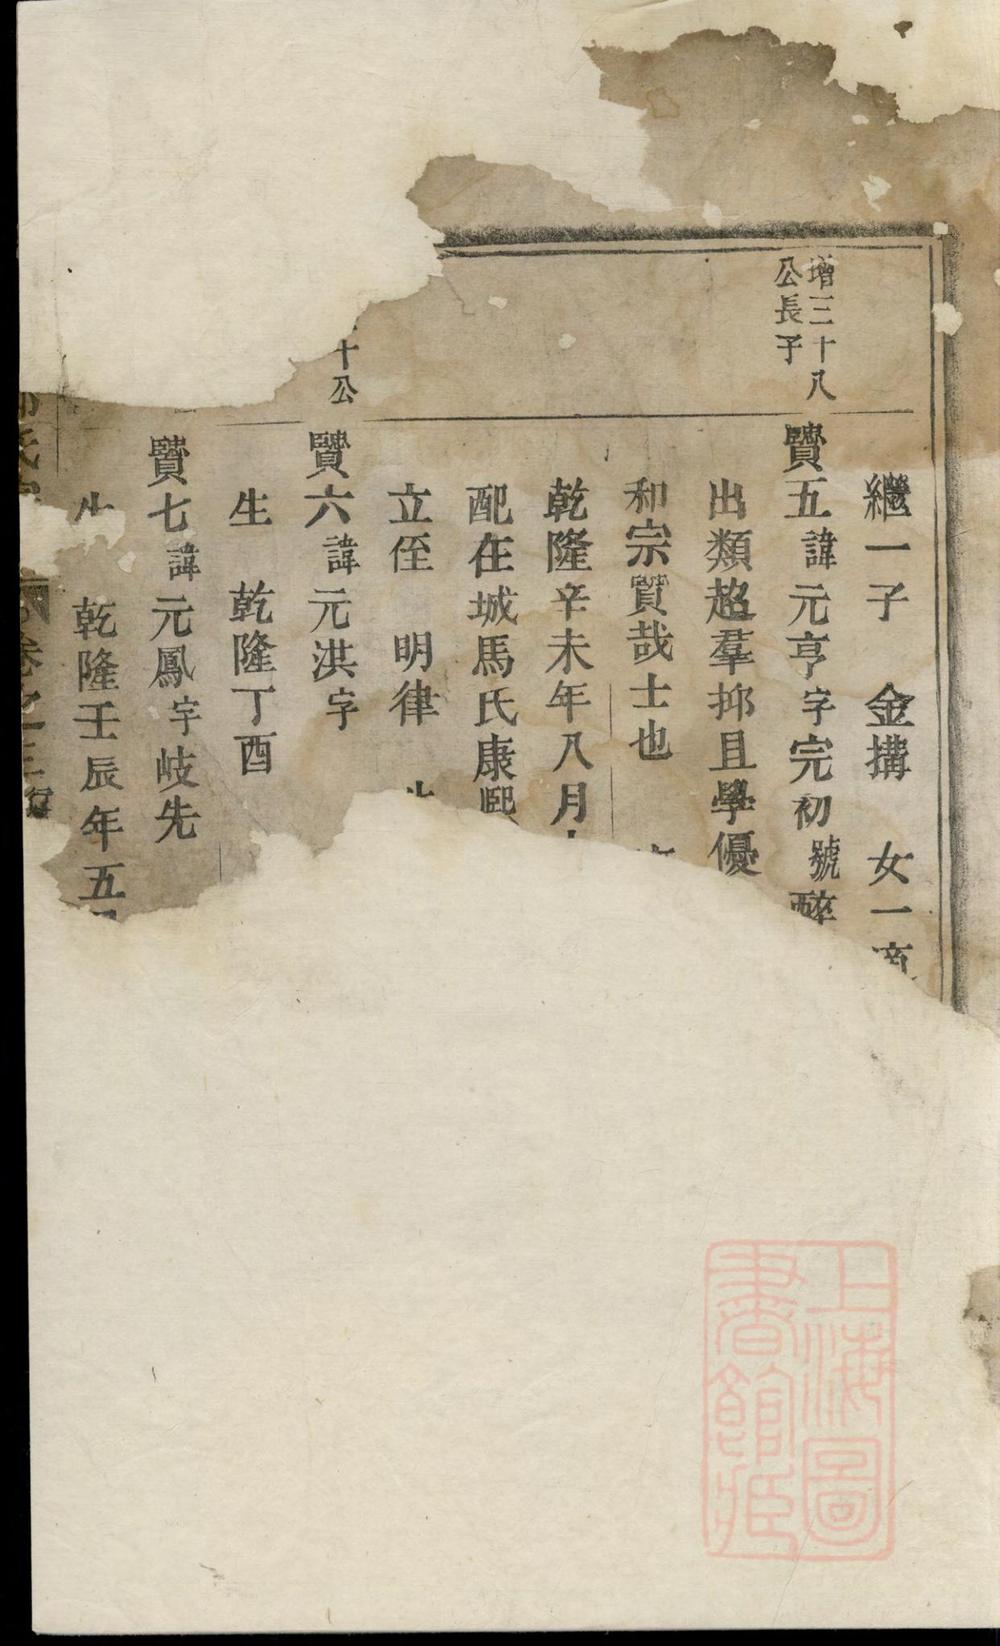 繼一子 金搆 女一適
增三十八
公長子
贒五諱元亨字完初號醉
出類超羣抑且學優
和宗贒哉士也
乾隆辛未年八月十
配在城馬氏康熙
立侄 明律
十公
贒六諱元淇字
生 乾隆丁酉
贒七諱元鳳字岐先
生 乾隆壬辰年五月
氏 卷之
上海圖
書館藏